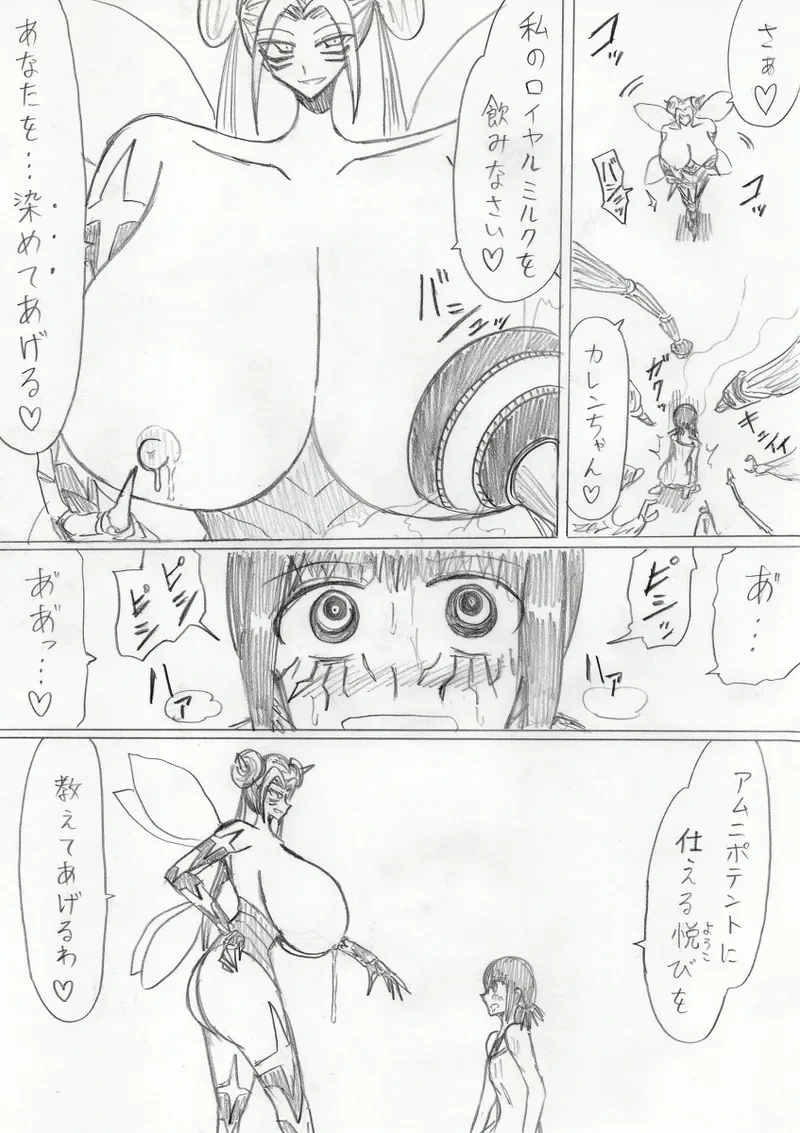 さぁ♡
コッ
コッ
バシュッ
カレンちゃん♡
ガクッ
キッイイ
私のロイヤルミルクを
飲みなさい♡
バシュッ
あなたを…染めてあげる♡
あ゛…
ピシッ
ハァ
ピシ
ピシ
ハァ
あ゛あ゛っ…♡
アムニポテントに
仕える悦びを
ようこ
教えてあげるわ♡